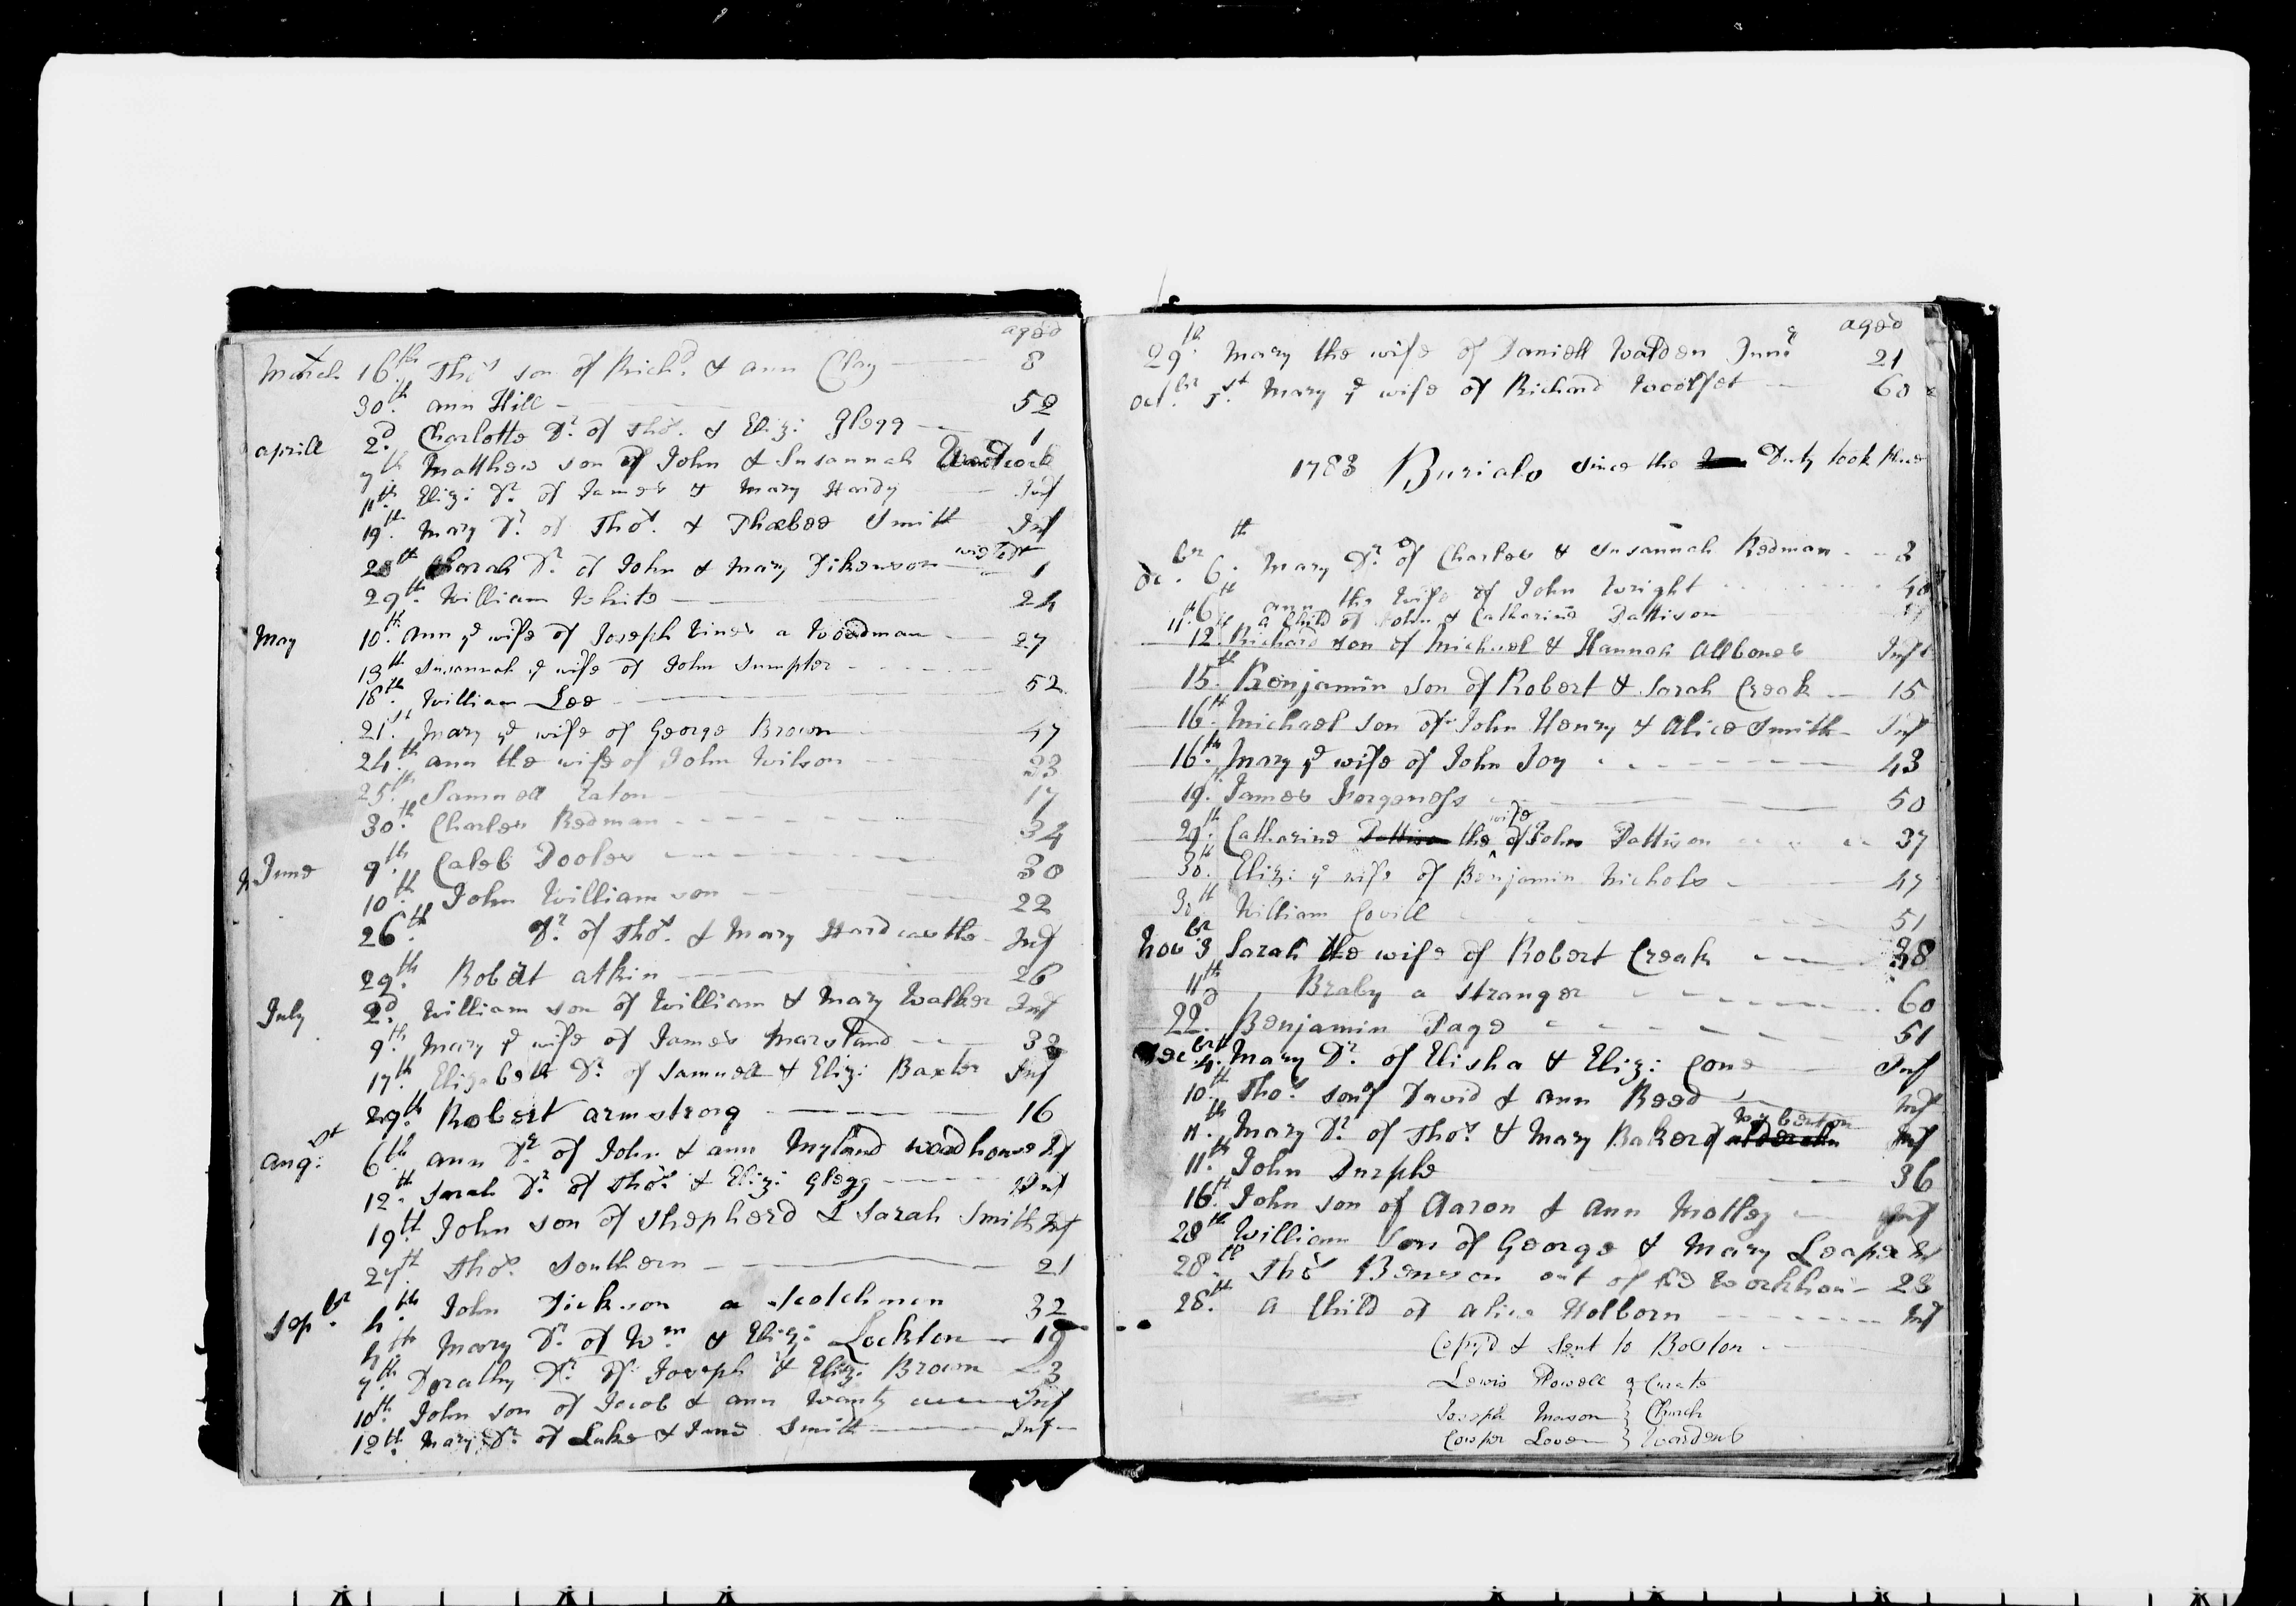 aged
March 16th Thos son of Richd & ann Clay 8
30th ann Hill 52
aprill 2d Charlotte Dr of Thos & Eliz: Glegg 1
7th Matthew son of John & Susannah
11th Eliz: Dr of James & Mary Hardy Inf
19th Mary Dr of Thos & Phæbee Smith Inf
28th Sarah Dr of John & Mary Dikenson 1
29th William White 24
May 10th Ann ye wife of Joseph Vines a Woodman 27
13th Susannah ye wife of John Sumpter
18th William Lee 52
21st Mary ye wife of George Brown 47
24th ann the wife of John Wilson 33
25th Samuell Eaton 17
30th Charles Redman 34
June 9th Caleb Pooles 30
10th John Williamson 22
26th Dr of Thos & Mary Hardcastle Inf
29th Robert atkin 26
July 2d William son of William & Mary Walker Inf
9th Mary ye wife of James Marsland
17th Elizabeth Dr of Samuell & Eliz: Baxter Inf
29th Robert armstrong 16
augst 6th ann Dr of John & ann Inyland woodhouse Inf
12th Sarah Dr of Thos & Eliz: Glegg Inf
19th John son of Shepherd & Sarah Smith Inf
27th Thos Southern 21
Sepbr 4th John Dickson a Scotchmen 32
4th Mary Dr of Wm & Eliz: Lockton 19
7th Dorathy Dr of Joseph & Eliz: Brown 3
10th John son of Jacob & ann Wanty Inf
12th Mary Dr of Luke & Jane Smith Inf
aged
29th Mary the wife of Daniell Walden Junr 21
Octbr 1st Mary ye wife of Richard Woolfet 60
1783 Burials since the Duty took Place
Ocbr 6th Mary Dr of Charles & Susannah Redman 3
6th ann the wife of John Wright
11th a Child of John & Catharine Pattison
12th Richard son of Michael & Hannah Allbones Inft
15th Benjamin son of Robert & Sarah Creak 15
16th Michael son of John Henry & Alice Smith Inf
16th Mary ye wife of John Joy 43
19th James 50
29th Catharine the wife of John Pattison 37
30th Eliz: ye wife of Benjamin Nichols 47
30th William Covill 51
Novbr 3 Sarah the wife of Robert Creak 38
11th Braby a stranger 60
22d Benjamin Page 51
Decbr 4th Mary Dr of Elisha & Eliz: Cone Inf
10th Thos son of David & ann Reed Inf
11th Mary Dr of Thos & Mary Baker of Wyberton Inf
11th John Purple 36
16th John son of Aaron & Ann Motley Inf
28th William Son of George & Mary Leape Inf
28th Thos Benson out of the Workhou 23
28th a Child of alice Holborn Inf
Copyd & Sent to Boston
Lewis Powell } Curate
Joseph Mason } Church
Cowper Loven } Wardens